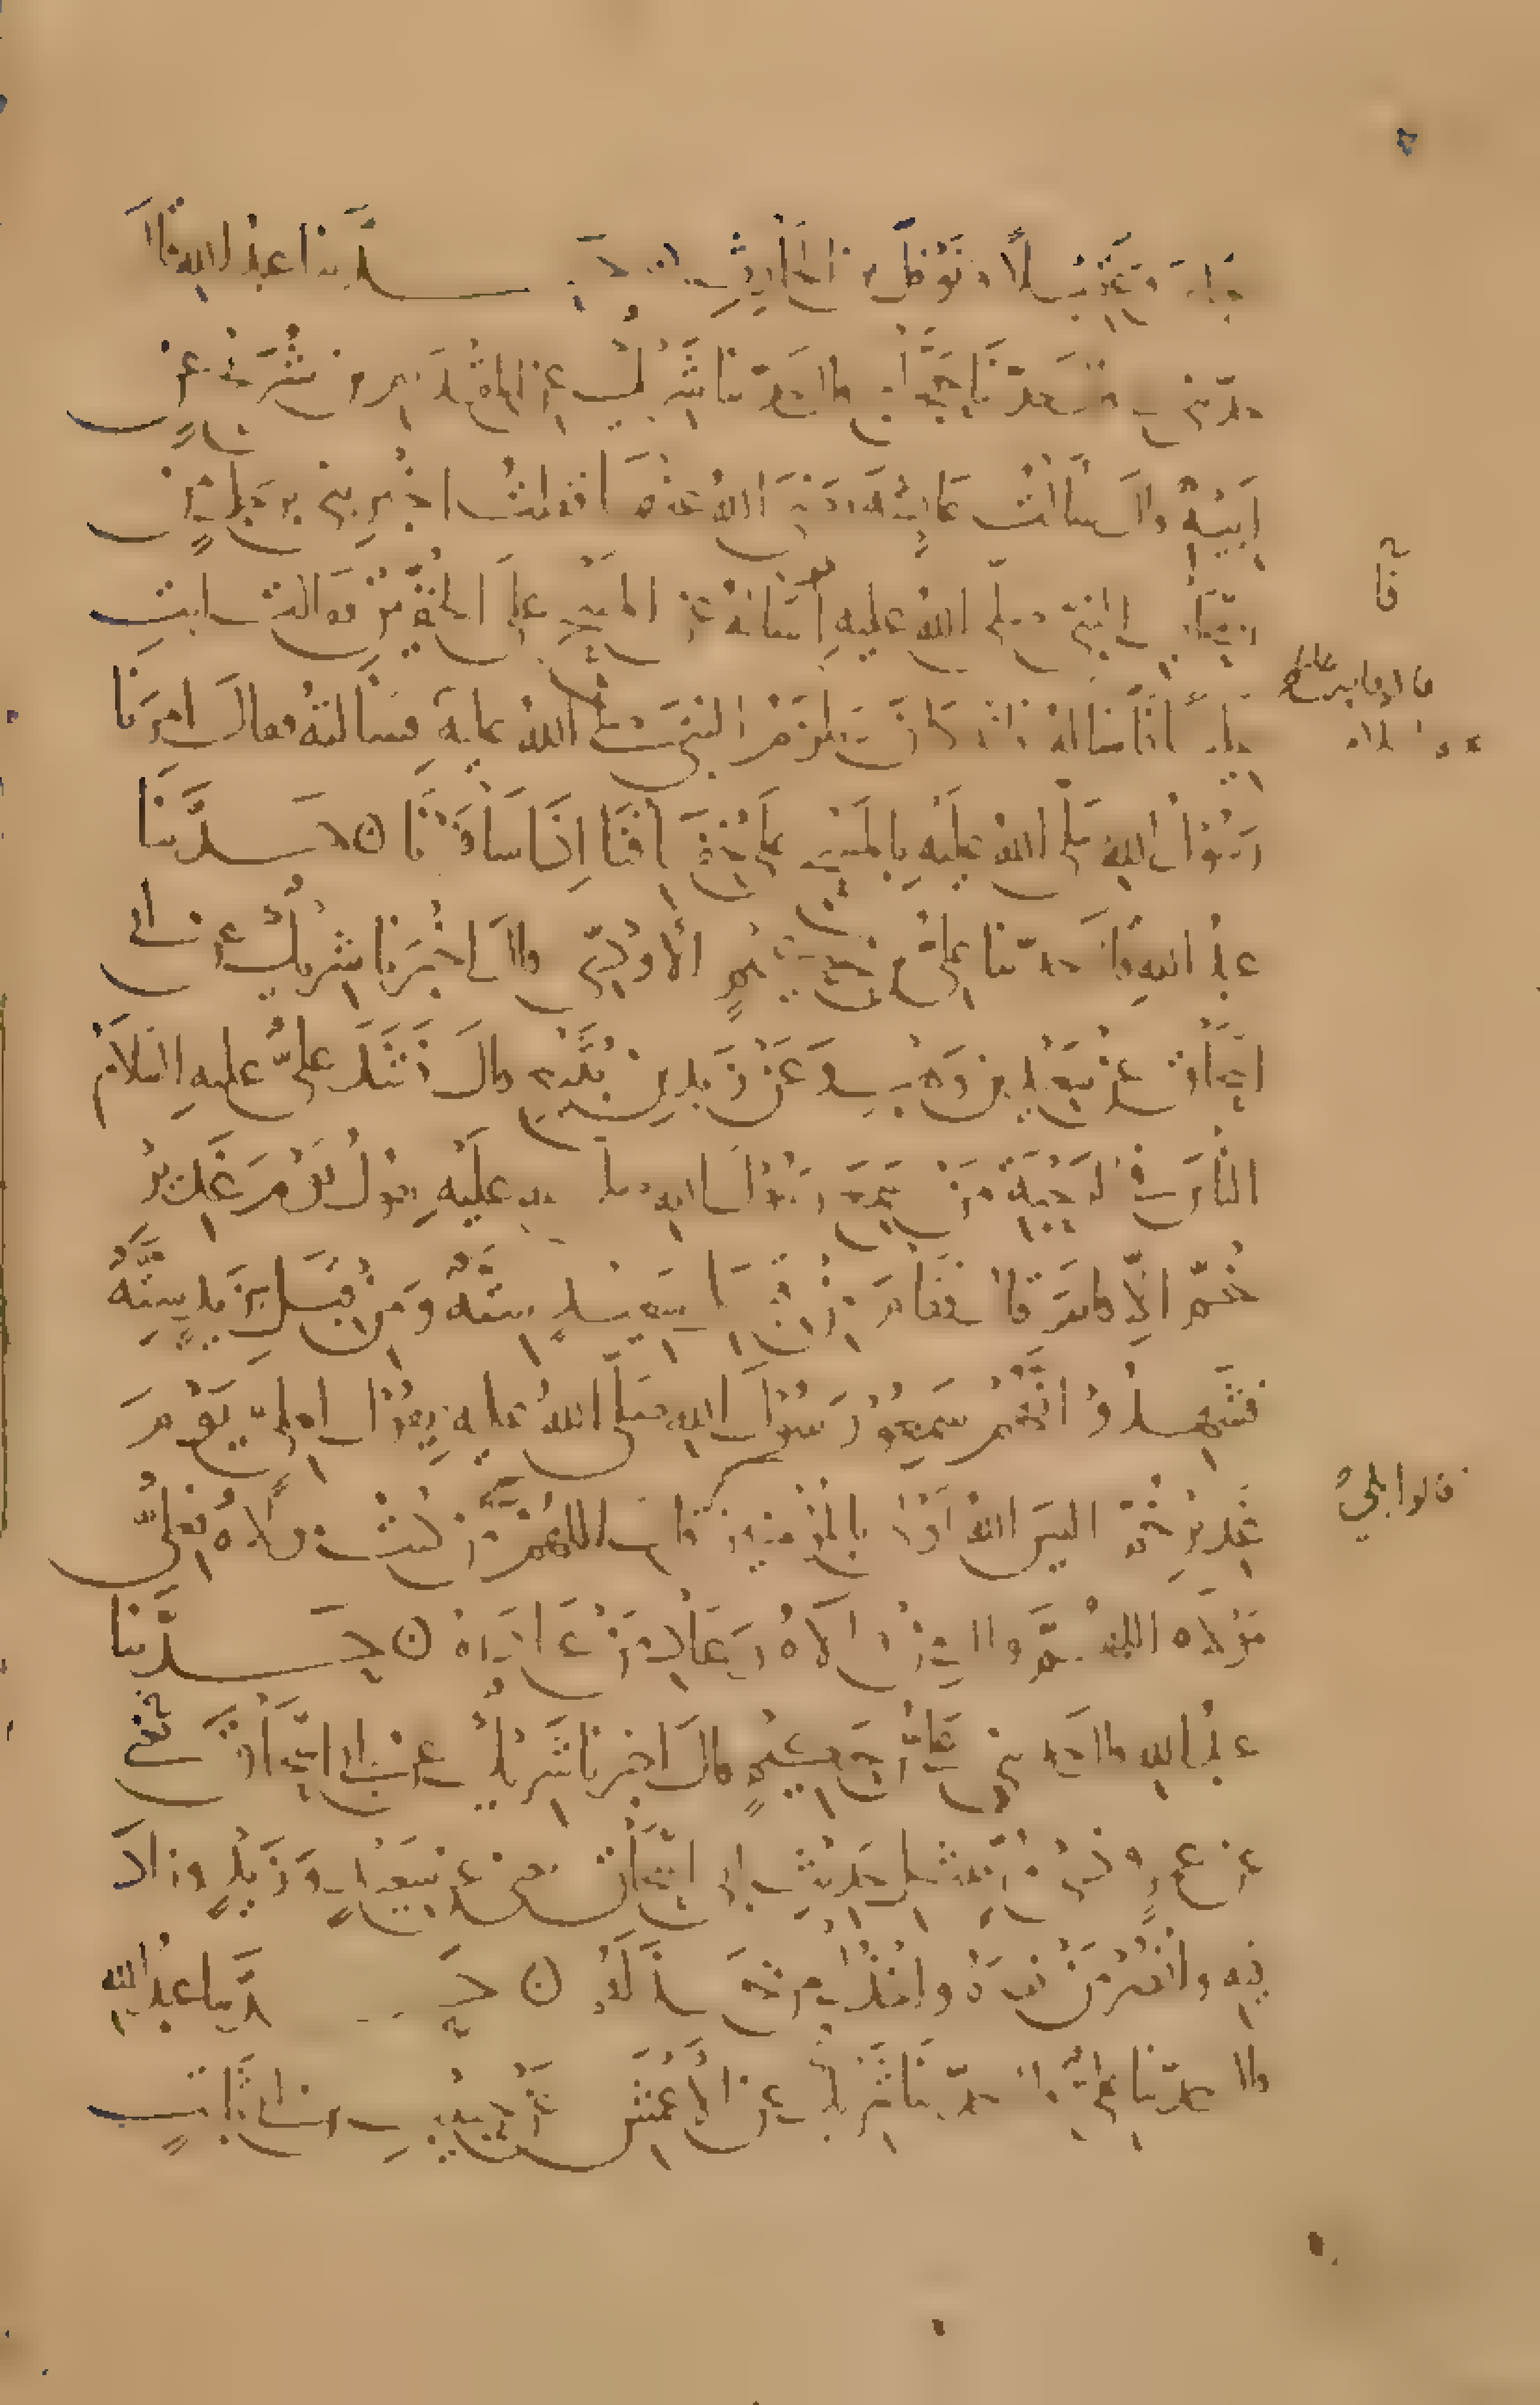 حدثنا عبد الله قال
حدثني حدثنا حجاج قال حدثنا شريك عن المقدام بن شريح عن
ابيه قال سألت عائشة رضي الله عنها فقلت اخبريني برجل من
اصحاب النبي صلى الله عليه اسأله عن المسح على الخفين فقالت ايت
عليا فسله فانه كان يلزم النبي صلى الله عليه فسألته فقال امرنا
رسول الله صلى الله عليه بالمسح على خفافنا اذا سافرنا ن حدثنا
عبد الله قال حدثنا علي بن حكيم الاودي قال اخبرنا شريك عن ابي
اسحاق عن سعيد بن وهب وعن زيد بن يثيع قال نشد علي عليه السلام
الناس في الرحبة من سمع رسول الله صلى الله عليه يقول يوم غدير
خم الا قام قال فقام من قبل سعيد ستة ومن قبل زيد ستة
فشهدوا انهم سمعوا رسول الله صلى الله عليه يقول لعلي يوم
غدير خم اليس الله اولى بالمؤمنين قال اللهم من كنت مولاه فعلي
مولاه اللهم وال من والاه وعاد من عاداه ن حدثنا
عبد الله قال حدثني علي بن حكيم قال اخبرنا شريك عن ابي اسحاق
عن عمرو ذي مر بمثل حديث ابي اسحاق يعني عن سعيد وزيد وزاد
فيه وانصر من نصره واخذل من خذله ن حدثنا عبد الله
قال حدثنا علي قال حدثنا شريك عن الاعمش عن حبيب بن ابي ثابت
قالوا بلى